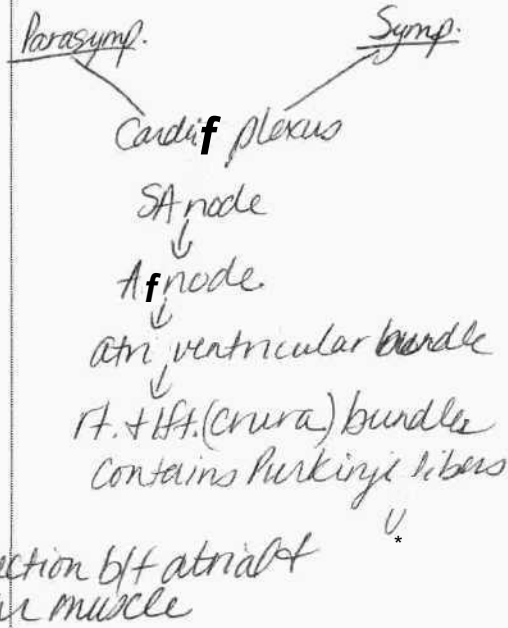 Parasymp. Symp.
Cardif plexus
SA node
↓
Af node.
↓
atri ventricular bundle
↓
rt. + lft. (crura) bundles
contains Purkinje fibers
↓
*
ection b/t atrial +
muscle